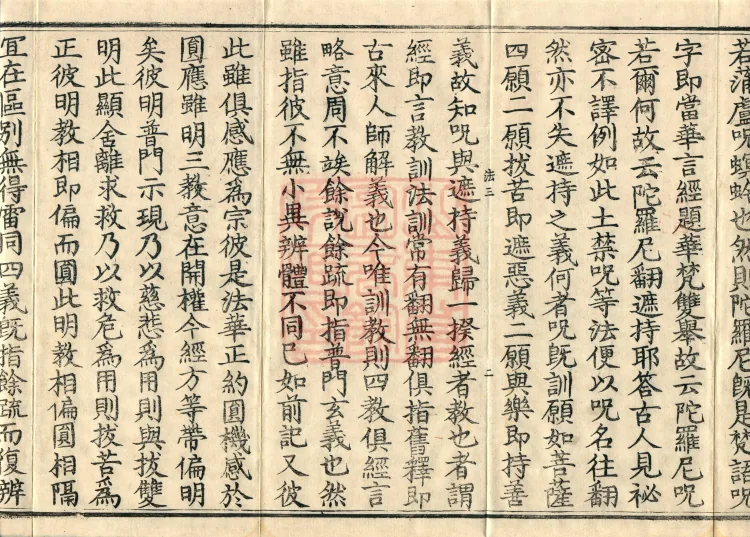 若蒲盧呪螟蛉也然則陀羅尼既是梵語呪
字即當華言經題華梵雙舉故云陀羅尼呪
若爾何故云陀羅尼翻遮持耶荅古人見祕
密不譯例如此土禁呪等法便以呪名往翻
然亦不失遮持之義何者呪既訓願如菩薩
四願二願拔苦即遮惡義二願與樂即持善
義故知呪與遮持義歸一揆經者教也者謂
法三
二
經即言教訓法訓常有翻無翻俱指舊釋即
古來人師解義也今唯訓教則四教俱經言
略意周不竢餘說餘疏即指普門玄義也然
雖指彼不無小異辨體不同已如前記又彼
此雖俱感應為宗彼是法華正約圓機感於
圓應雖明三教意在開權今經方等帶偏明
矣彼明普門示現乃以慈悲為用則與拔雙
明此顯舍離求救乃以救危為用則拔苦為
正彼明教相即偏而圓此明教相偏圓相隔
宜在區別無得雷同四義既指餘疏而復辨